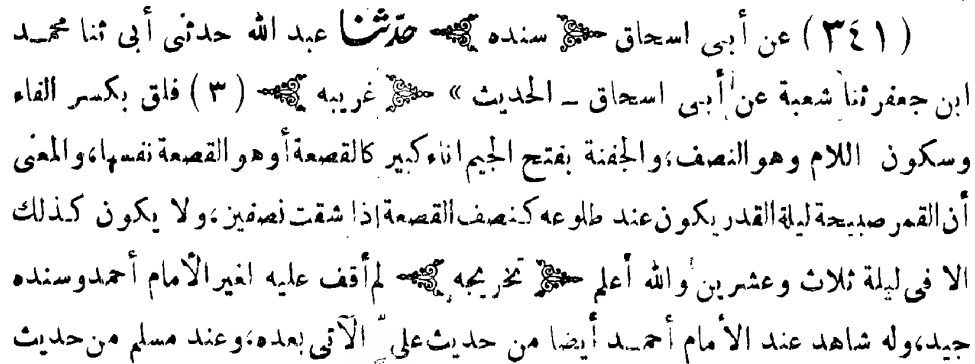 (٣٤١) عن أبى اسحاق ﴿ سنده ﴾ حدّثنا عبد الله حدثنى أبى ثنا محمـد
ابن جعفر ثنا شعبة عن أبى اسحاق ــ الحديث » ﴿ غريبه ﴾ (٣) فلق بكسر الفاء
وسكون اللام وهو النصف، والجفنة بفتح الجيم اناء كبير كالقصعة أو هو القصعة نفسها، والمعنى
أن القمر صبيحة ليلة القدر يكون عند طلوعه كنصف القصعة إذا شقت نصفين، ولا يكون كذلك
الا فى ليلة ثلاث وعشرين والله أعلم ﴿ تخريجه ﴾ لم أقف عليه لغير الأمام أحمد وسنده
جيد، وله شاهد عند الأمام أحمـد أيضا من حديث علىّ الآتى بعده، وعند مسلم من حديث